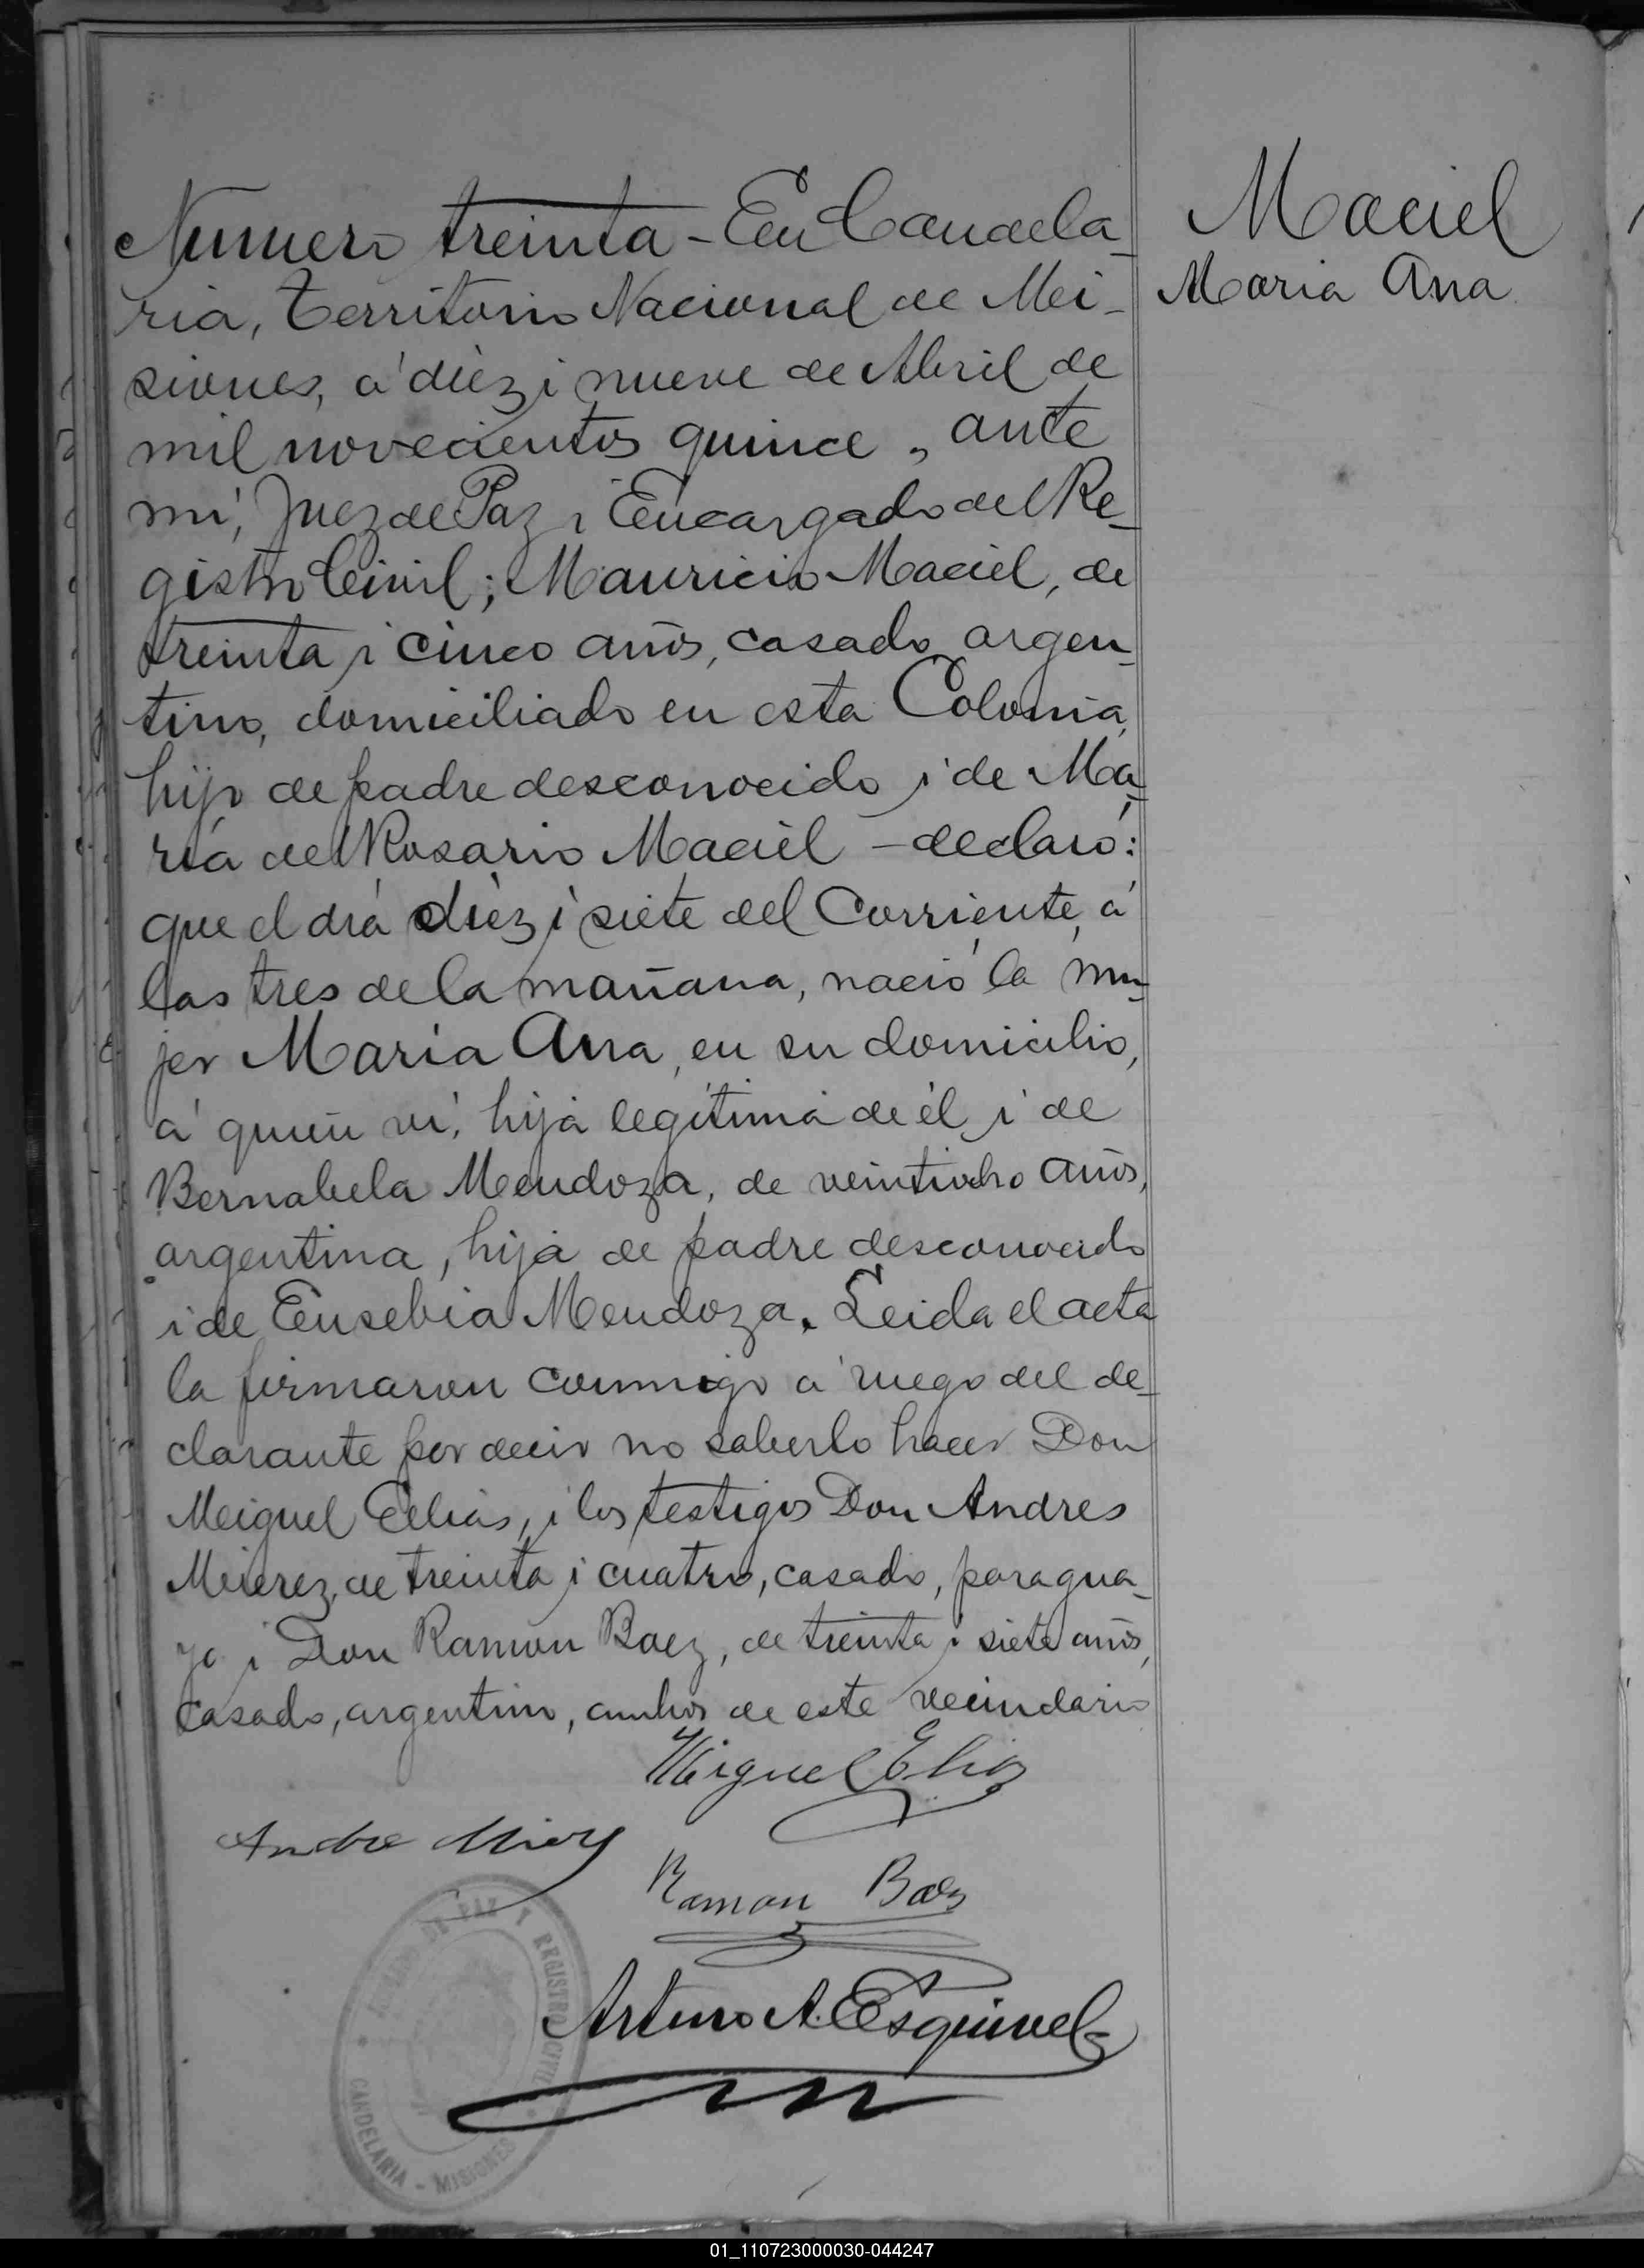 Maciel
Maria Ana
Numero treinta - En Candela-
ria, Territorio Nacional de Mi-
siones, á diez i nueve de Abril de
mil novecientos quince, ante
mí, Juez de Paz i Encargado del Re-
gistro Civil; Mauricio Maciel, de
treinta i cinco años, casado, argen-
tino, domiciliado en esta Colonia,
hijo de padre desconocido i de Ma-
ría del Rosario Maciel - declaró:
que el día diez i siete del Corriente, á
las tres de la mañana, nació la mu-
jer María Ana, en su domicilio,
á quien ví, hija legítima de él i de
Bernabela Mendoza, de veintiocho años,
argentina, hija de padre desconocido
i de Eusebia Mendoza. Leida el acta
la firmaron conmigo á ruego del de-
clarante por decir no saberlo hacer Don
Miguel Elias, i los testigos Don Andres
Mierez, de treinta i cuatro, casado, paragua-
yo i Don Ramon Baez, de treinta i siete años,
casado, argentino, ambos de este vecindario
Miguel Elias
Andre Mierz
Ramon Baez
Arturo A. Esquivel
JUZGADO DE PAZ Y REGISTRO CIVIL
CANDELARIA - MISIONES
01_110723000030-044247